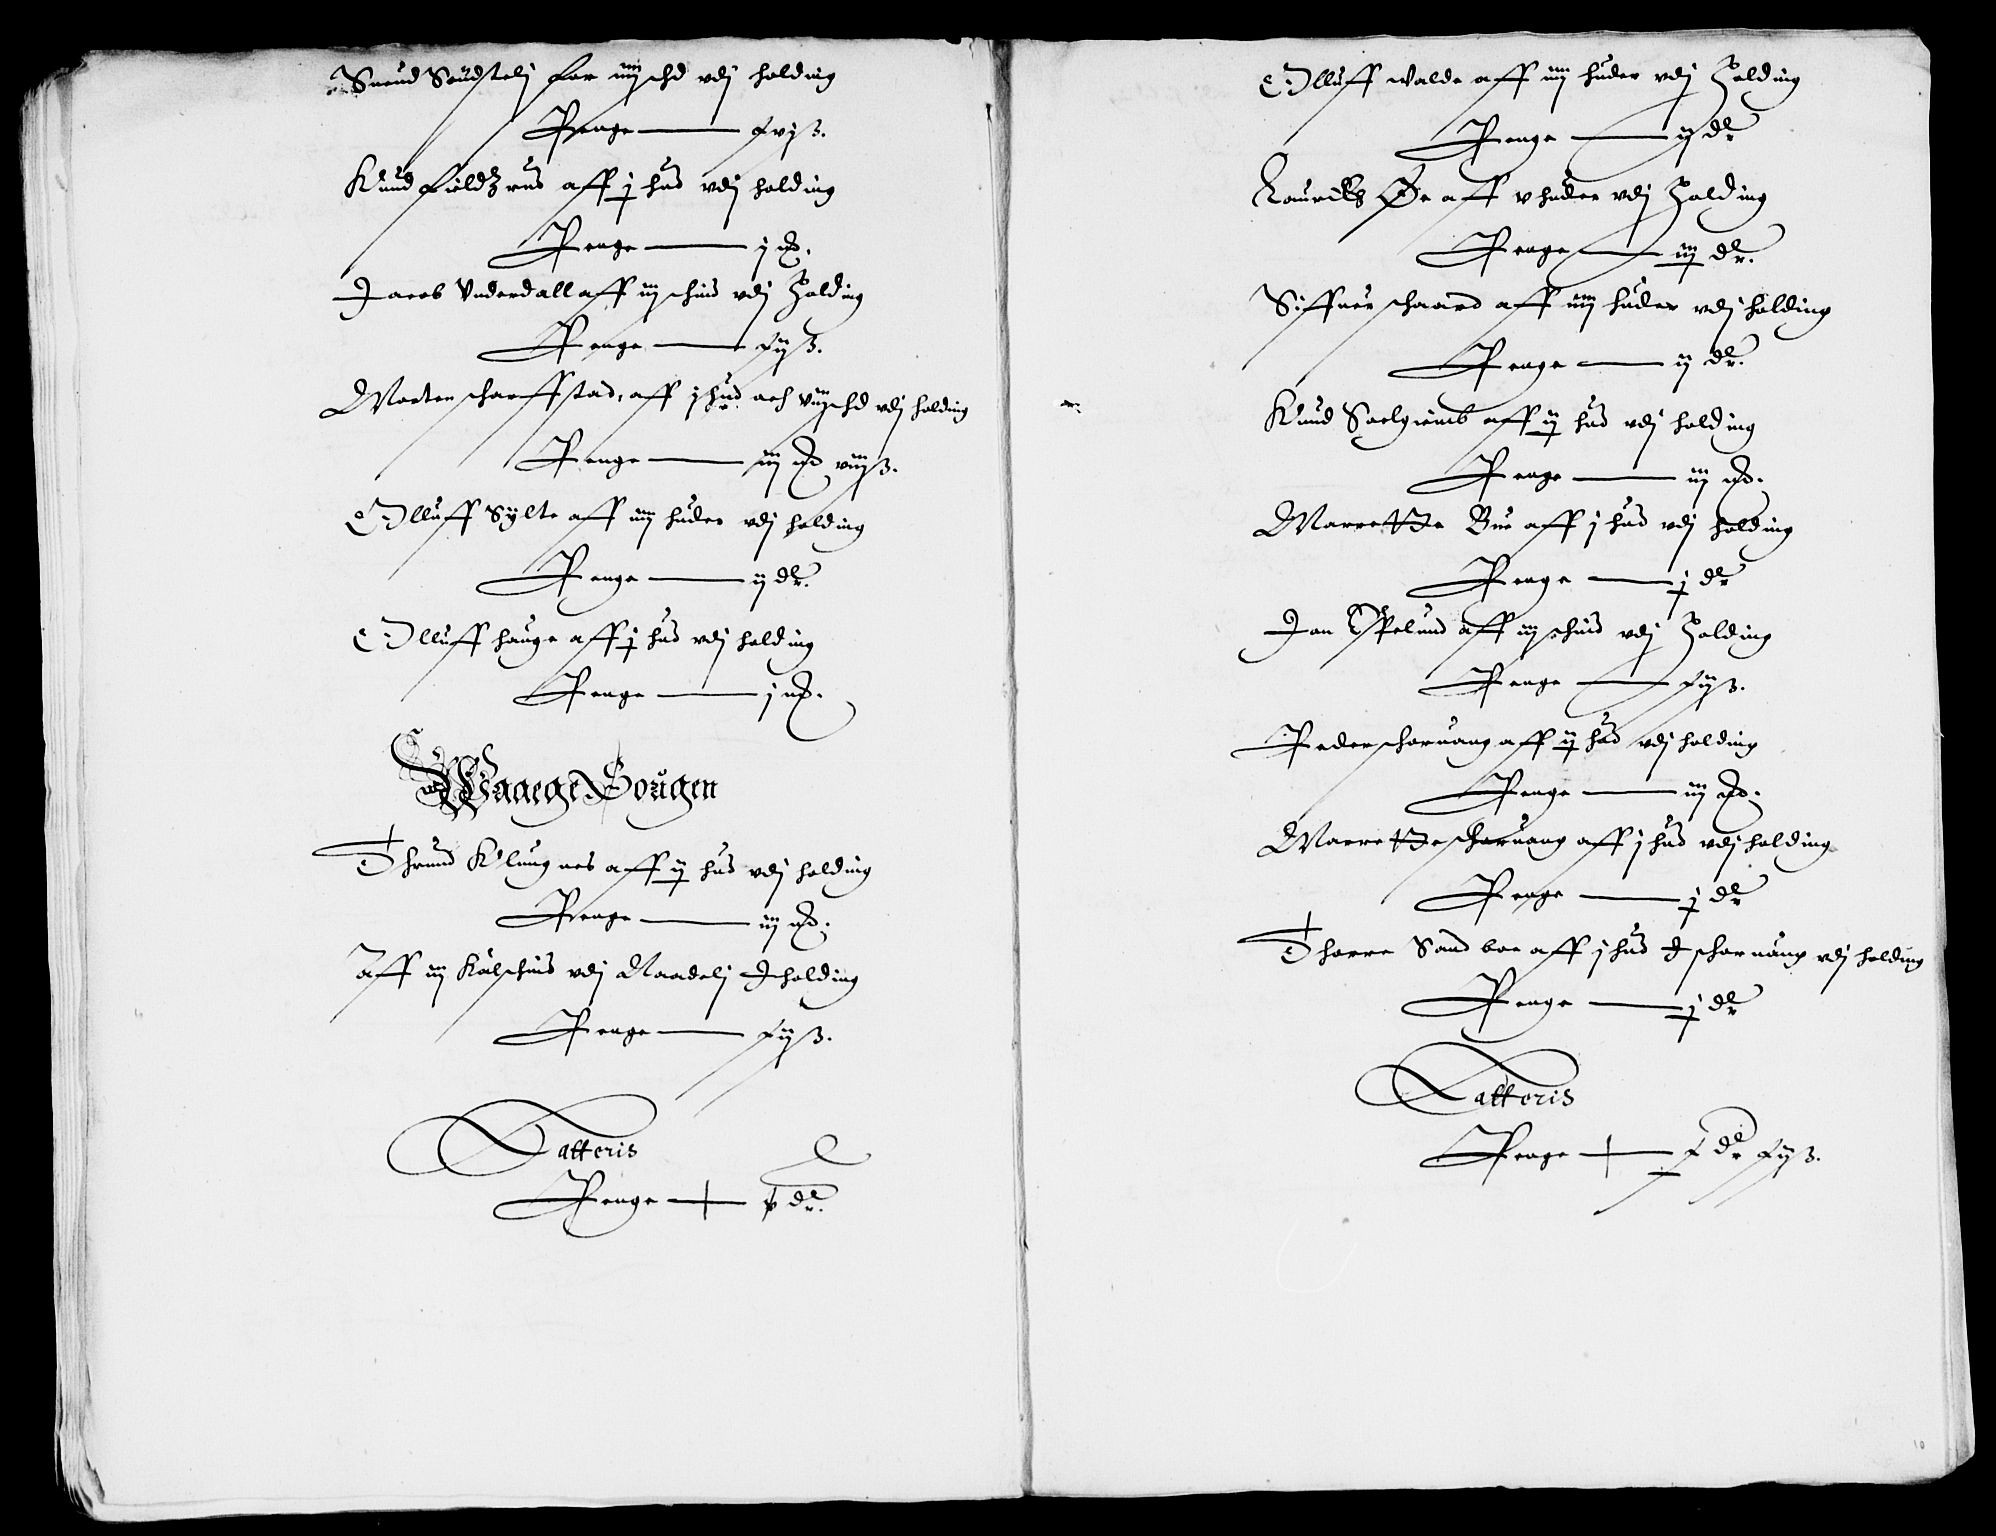 Suend Soudstelj for iiij schd vdj holding
Penge — xvj ß.
Knud fieldzrus aff j hud vdj holding
Penge — j mk.
Jacob Vnderdall aff iij schind vdj Holding
Penge — xij ß.
Morten scharffstad, aff j hud och viij schd vdj holding
Penge — iij mk viij ß.
Olluff Sylte aff iiij huder vdj holding
Penge — ij dr.
Olluff hauge aff j hud vdj holding
Penge — j mk.
Waaege Sougen
Thrund Klungnes aff ij hud vdj holding
Penge — iij mk.
Aff iij Kalschind vdj Naadelj J holding
Penge — xij ß.
Latteris
Penge — v dr.
Olluff walde aff iiij huder vdj Holding
Penge — ij dr
Lauridts Øe aff v huder vdj Holding
Penge — iij dr.
Siffuer schaard aff iiij huder vdj holding
Penge — ij dr.
Knud Soelgiemb aff ij hud vdj holding
Penge — iij mk.
Marrette Bue aff j hud vdj holding
Penge — j dr
Jon Espelund aff iij schind vdj Holding
Penge — xij ß.
Peder schoruang aff ij hud vdj holding
Penge — iij mk.
Marrette schoruang aff j hud vdj holding
Penge — j dr
Thorre Sandboe aff j hud J schoruang vdj holding
Penge — j dr
Latteris
Penge — x dr xij ß.
10